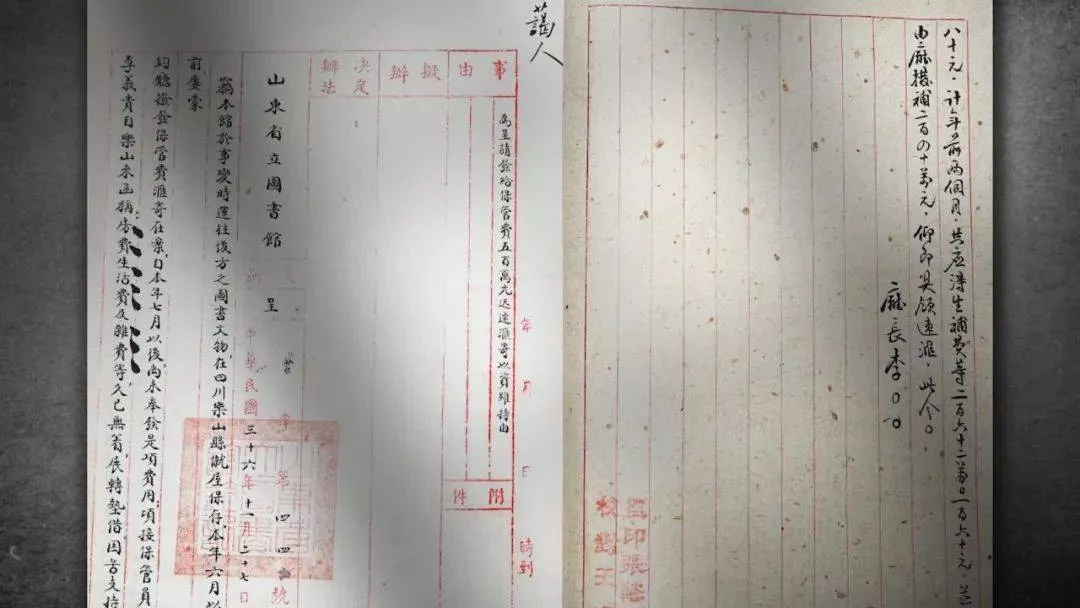 八十元。計年前兩個月，共應得生補費等二百六十二萬〇一百六十元，
由廳撥補二百四十萬元，仰即具領速滙，此令。
廳長李〇〇
監印張
校對王
藹人
事由
擬辦
決定辦法
為呈請發給保管費五百萬元迅速滙寄以資維持由
附件
年 月 日 時到
山東省立圖書館 呈
字第四四號
中華民國三十六年十一月二十七日
竊本館於事變時運往後方之圖書文物，在四川樂山縣僦屋保存，本年六月以
前屢蒙
鈞廳撥發保管費滙寄在案，自本年七月以後，尚未奉發是項費用；頃接保管員
李義貴自樂山來函稱，房費生活費及雜費等，久已無着，展轉墊借，困苦支持